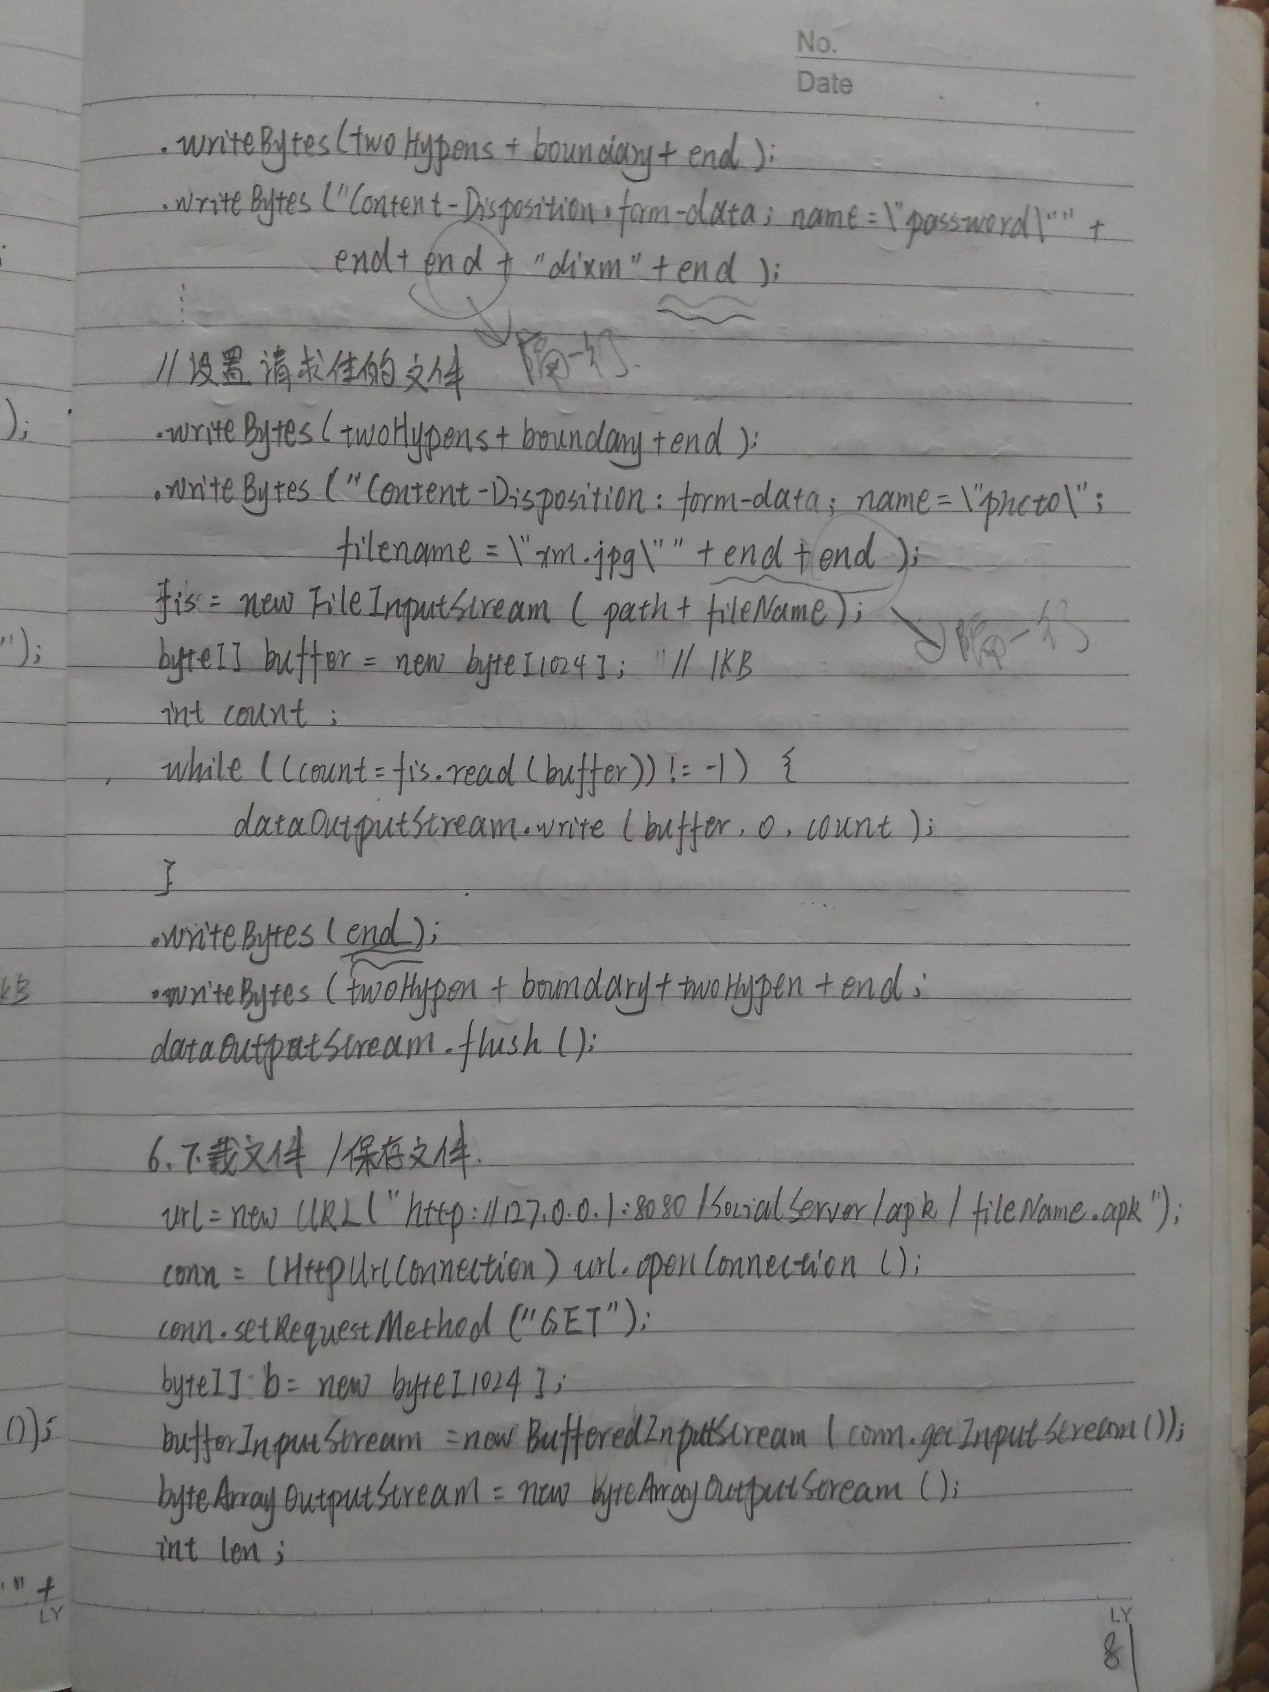 No.
Date
.writeBytes(twoHypens + boundary + end);
.writeBytes("Content-Disposition.form-data; name=\"password\"" +
end+ end + "dixm" + end );
隔一行.
//设置请求体的文件
.writeBytes(twoHypens+boundary+end);
.writeBytes("Content-Disposition: form-data; name=\"photo\";
filename=\"xm.jpg\"" + end + end );
隔一行
fis = new FileInputStream ( path + fileName );
byte[] buffer = new byte[1024]; // 1KB
int count ;
while ((count=fis.read(buffer)) != -1) {
dataOutputStream.write (buffer, 0, count );
}
.writeBytes(end);
.writeBytes(twoHypen + boundary + twoHypen + end ;
dataOutputStream.flush ();
6.下载文件 /保存文件.
url = new URL("http://127.0.0.1:8080/SocialServer/apk/fileName.apk");
conn = (HttpUrlConnection) url.openConnection ();
conn.setRequestMethod ("GET");
byte[] b= new byte[1024];
bufferInputStream =new BufferedInputStream (conn.getInputStream());
byteArrayOutputStream = new byteArrayOutputStream ();
int len ;
);
");
KB
());
"" +
LY
LY
8